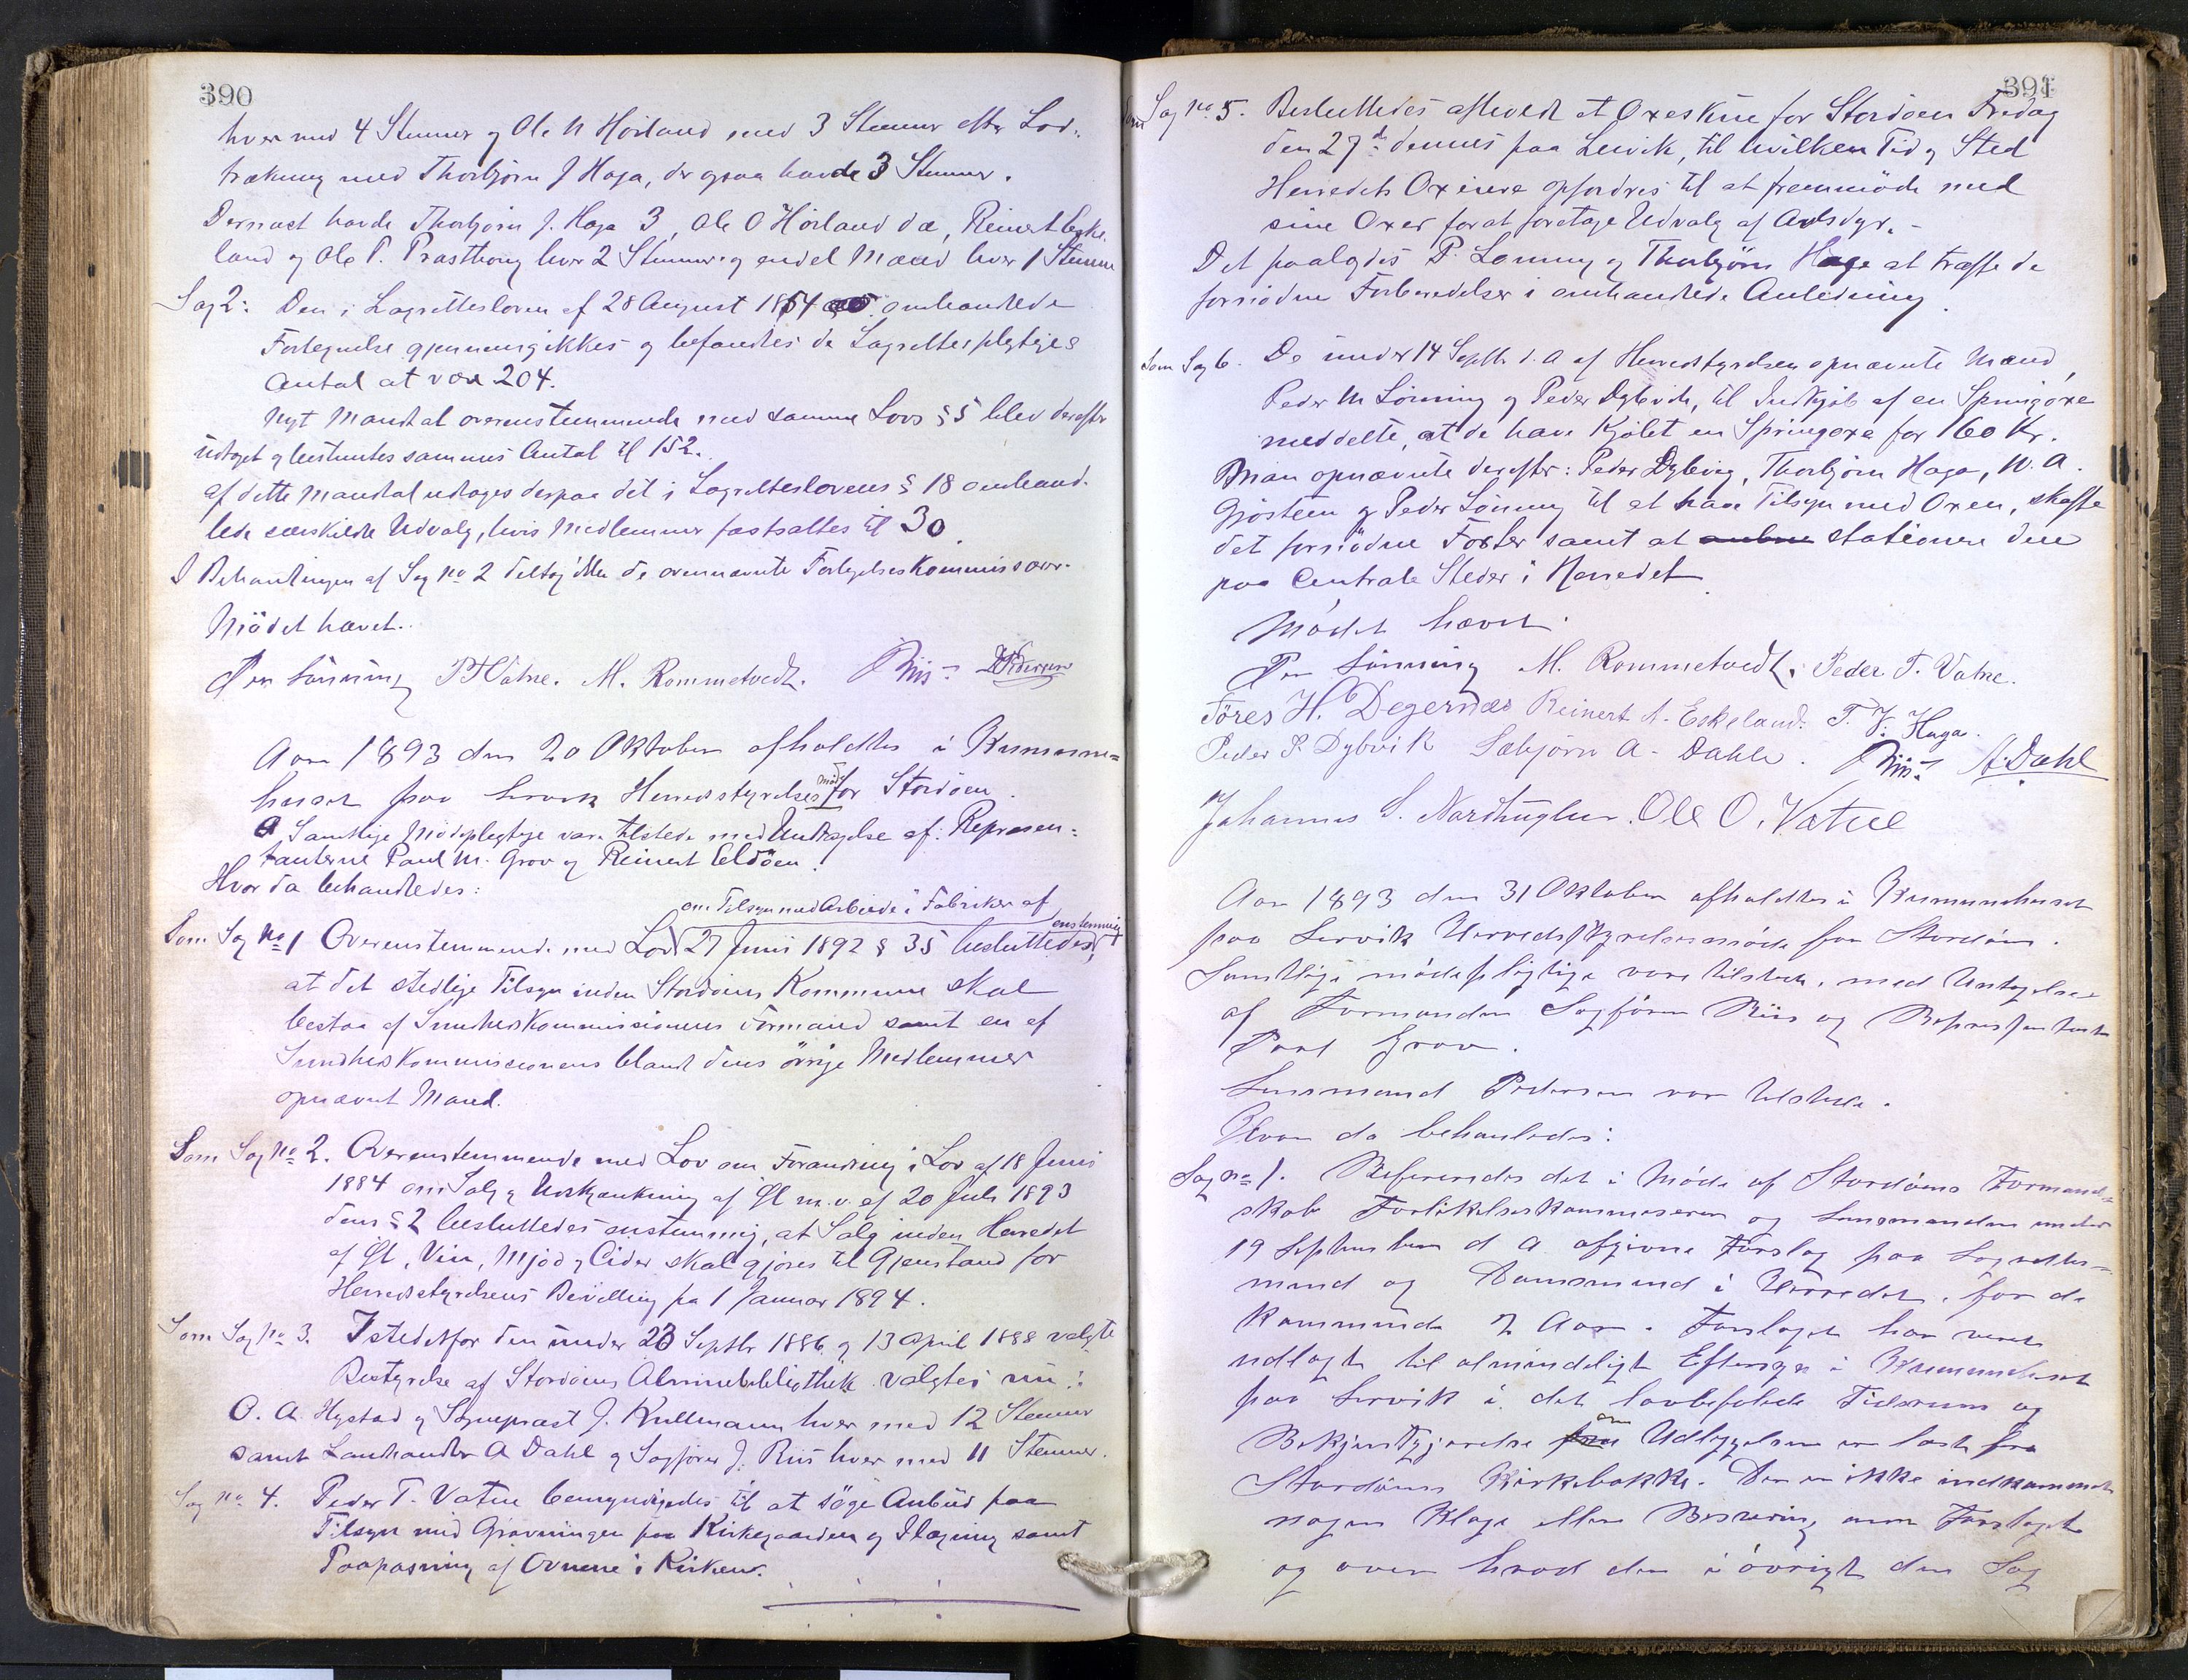 390
hver med 4 Stemmer og Ole N Hörland med 3 Stemmer efter Lod-
trækning med Thorbjörn J Haga, der ogsaa havde 3 Stemmer.
Dernæst havde Thorbjörn J. Haga 3, Ole O Hörland da, Reinert Eske
land og Ole T. Præsthoug hver 2 Stemmer og endel Mænd hver 1 Stemme
Sag 2: Den i Lagretteloven af 28 August 1854 omhandlede
Fortegnelse gjennemgikkes og befandtes de Lagrettespligtiges
Antal at være 204.
Nyt Mandtal overensstemmende med samme Lovs § 5 blev derefter
udtaget og bestemtes sammes Antal til 152.
af dette Mandtal udtoges derpaa det i Lagretteslovens § 18 omhand-
lede særskilte Udvalg, hvis Medlemmer fastsattes til 30.
I Behandlingen af Sag No 2 deltog ikke de overnævnte Forligelseskommissærer.
Mödet hævet.
Peer Lönning P T Vatne. M. Rommetvedt. J Riis Pedersen
Aar 1893 den 20 Oktober afholdtes i Kummune-
huset paa Lervik Herredsstyrelsesmöde for Stordöen.
Samtlige Mödepligtige vare tilstede med Undtagelse af: Repræsen-
tanterne Paul M. Grov og Reinert Eldöen.
Hvor da behandledes:
om Tilsyn med Arbeide i Fabriker af
Som Sag No 1 Overensstemmende med Lov 27 Juni 1892 § 35 besluttedes enstemmig
at det stedlige Tilsyn inden Stordöens Kommune skal
bestaa af Sundhedskommissionens Formand samt en af
Sundhedskommissionens blandt dens övrige Medlemmer
opnævnt Mand.
Som Sag No 2. Overensstemmende med Lov om Forandring i Lov af 18 Juni
1884 om Salg og Udskjænkning af Öl m.v. af 20 Juli 1893
dens § 2 besluttedes enstemmig, at Salg inden Herredet
af Öl, Vin, Mjöd og Cider skal gjöres til Gjenstand for
Herredsstyrelsens Bevilling fra 1 Januar 1894.
Som Sag No 3. Istedetfor den under 23 Septbr 1886 og 13 April 1888 valgte
Bestyrelse af Stordöens Almuebibliothek valgtes nu:
O. A. Hystad og Sogneprest J. Kullmann hver med 12 Stemmer
samt Landhandler A Dahl og Sagförer J. Riis hver med 11 Stemmer.
Sag No 4. Peder T. Vatne bemyndigedes til at söge Anbud paa
Tilsyn med Gravningen paa Kirkegaarden og Ilægning samt
Paapasning af Ovnene i Kirken.
391
Som Sag No 5. Besluttedes afholdt et Oxeskue for Stordöen Fredag
den 27de dennes paa Lervik, til hvilken Tid og Sted
Herredets Oxeeiere opfordres til at fremmöde med
sine Oxer forat foretage Udvalg af Avlsdyr.
Det paalagdes P. Lönning og Thorbjörn Haga at træffe de
fornödne Forberedelser i omhandlede Anledning.
Som Sag 6. De under 14 Septb. d. A af Herredsstyrelsen opnævnte Mænd,
Peder M Lönning og Peder Dybvik, til Indkjöb af en Springoxe
meddelte, at de have Kjöbt en Springoxe for 160 Kr.
Man opnævnte derefter: Peder Dybvig, Thorbjörn Haga, N. A.
Gjöstein og Peder Lönning til at have Tilsyn med Oxen, skaffe
det fornödne Foster samt at stationere den
paa Centrale Steder i Herredet.
Mödet hævet.
Peer Lönning M. Rommetvedt. Peder T. Vatne.
Töres H. Degernæs Reinert A. Eskeland. T. J. Haga.
Peder P. Dybvik Sæbjörn A. Dahle. J Riis A. Dahl
Johannes S. Nordhuglen. Ole O. Vatne
Aar 1893 den 31 Oktober afholdtes i Kummunehuset
paa Lervik Herredsstyrelsesmöde for Stordöen.
Samtlige mödepligtige vare tilstede, med Untagelse
af Formanden Sagförer Riis og Repræsentant
Poul Grov.
Lensmand Pedersen var tilstede.
Hvor da behanledes:
Sag No 1. Referertes det i Möde af Stordöens Formand-
skab Forlikelseskommiserer og Lensmanden under
19 September d A afgivne Forslag paa Lagrettes-
mænd og Domsmænd i Herredet, for de
Kommende 2 Aar. Forslaget har været
udlagt til almindeligt Eftersyn i Kummunehuset
paa Lervik i det lovbefalede Tidsrum og
Bekjentgjörelse om Udlæggelsen er læst fra
Stordöens Kirkebakke. Der er ikke indkommet
nogen Klage eller Besværing over Forslaget
og over hvad der i övrigt den Sag